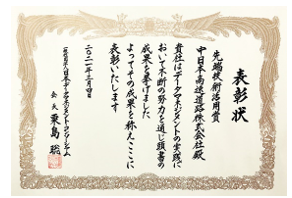 表彰状
先端技術活用賞
中日本高速道路株式会社殿
貴社はデータマネジメントの実践に
おいて不断の努力を通じ顕著の
成果を挙げました
よってその成果を称えここに
表彰いたします
二〇二一年三月四日
一般社団法人日本データマネジメント・コンソーシアム
会長 栗島 聡